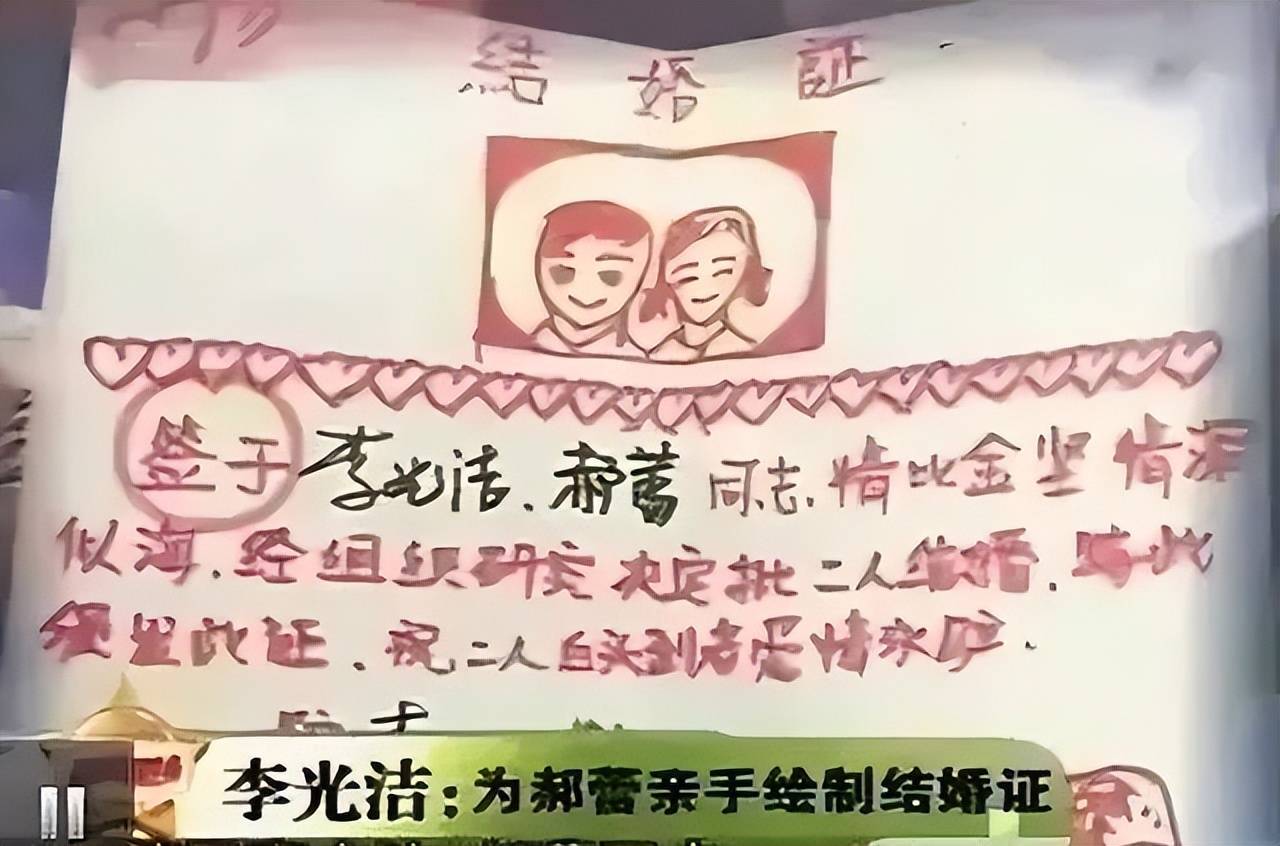 結婚証
签于李光洁、郝蕾同志、情比金坚情深
似海.经组织研究决定批二人结婚.特此
颁发此证.祝二人白头到老爱情永驻.
李光洁:为郝蕾亲手绘制结婚证